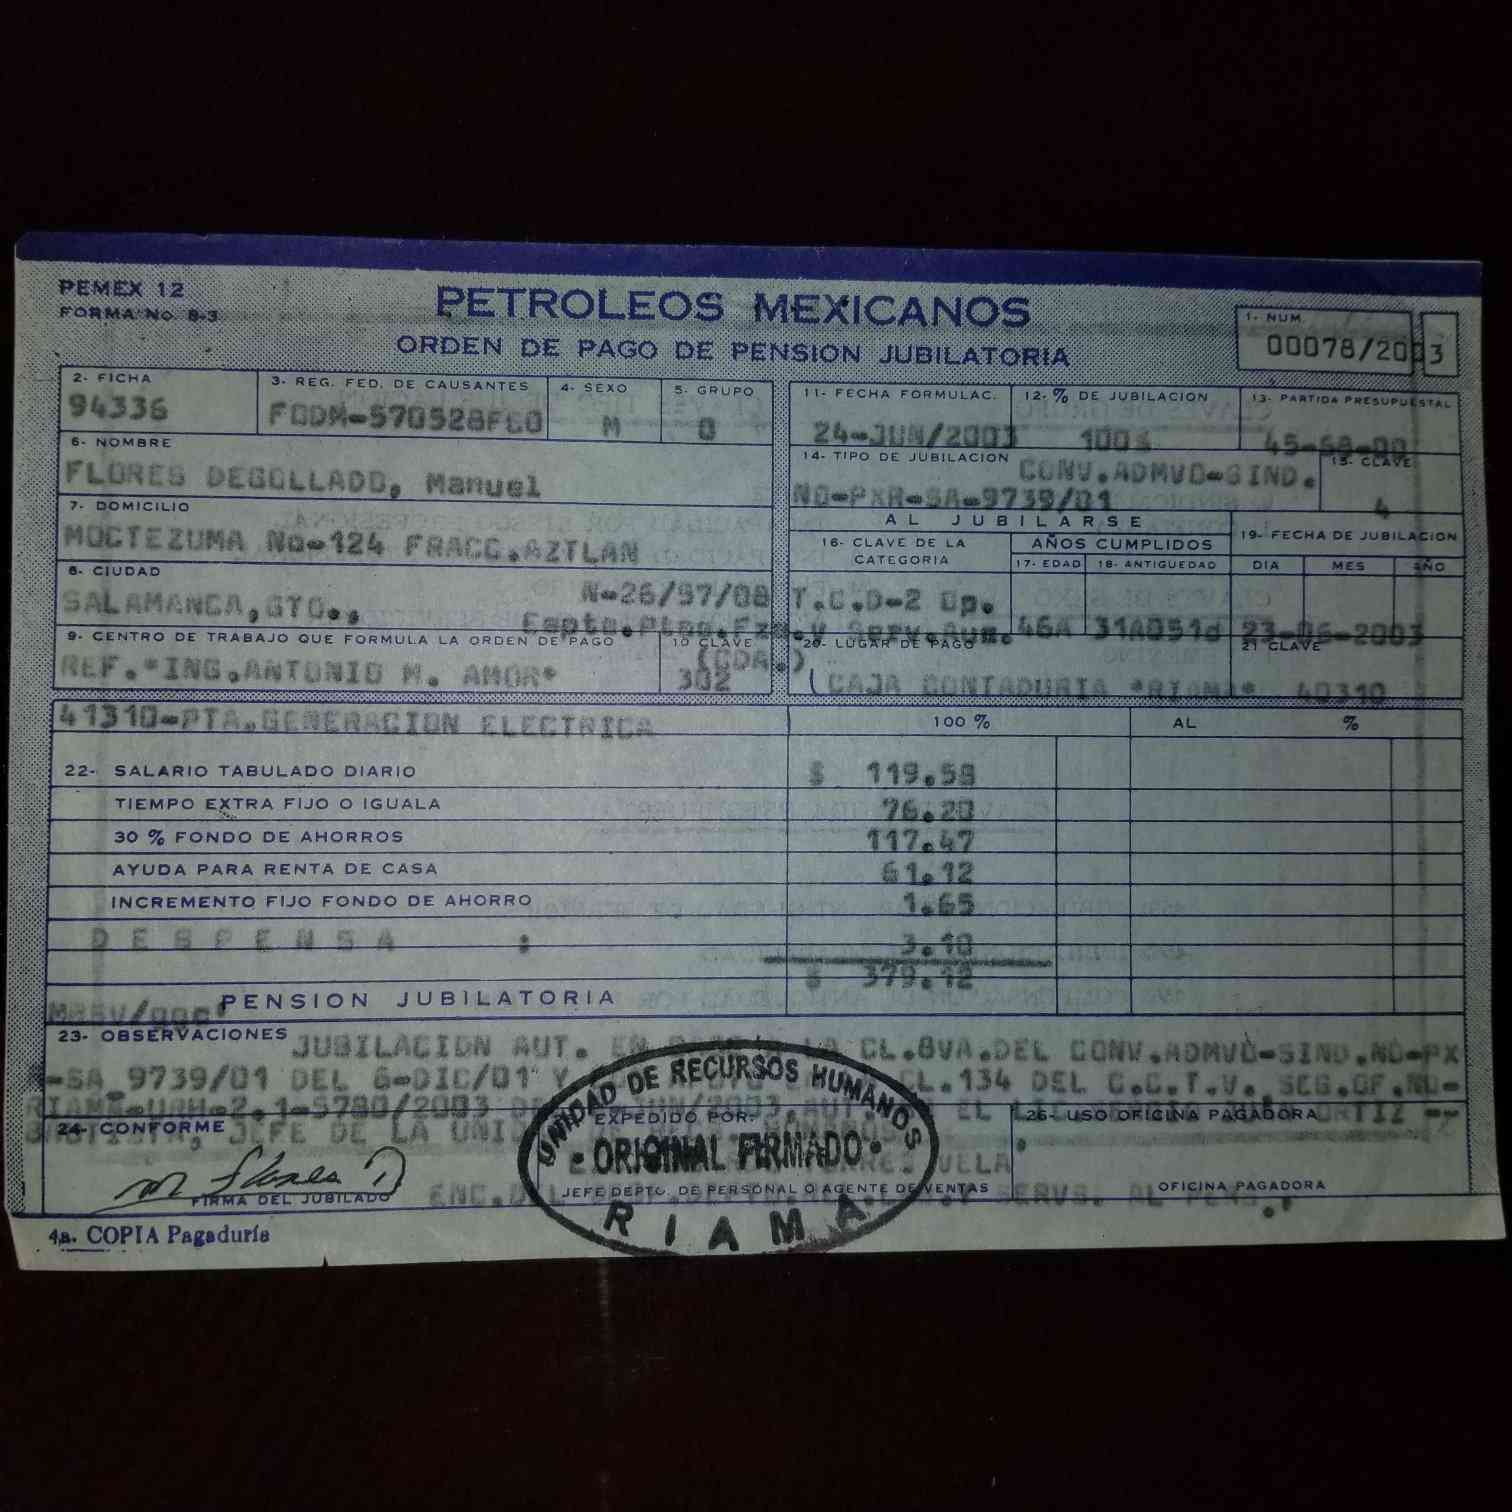 PEMEX 12
FORMA No. B-3
PETROLEOS MEXICANOS
ORDEN DE PAGO DE PENSION JUBILATORIA
1- NUM.
00078/2003
2- FICHA
94336
3- REG. FED. DE CAUSANTES
4- SEXO
M
5- GRUPO
0
11- FECHA FORMULAC.
24-JUN/2003
12- % DE JUBILACION
100%
13- PARTIDA PRESUPUESTAL
6- NOMBRE
FLORES DEGOLLADO, Manuel
14- TIPO DE JUBILACION CONV.ADMVO-SIND.
NO-PXR-SA-9739/01
15- CLAVE
4
7- DOMICILIO
MOCTEZUMA No-124 FRACC.AZTLAN
AL JUBILARSE
16- CLAVE DE LA CATEGORIA
AÑOS CUMPLIDOS
17- EDAD
18- ANTIGUEDAD
19- FECHA DE JUBILACION
DIA MES AÑO
8- CIUDAD
SALAMANCA,GTO.,
N-26/97/08 T.C.D-2 Op.
46A 31A051d 23-06-2003
9- CENTRO DE TRABAJO QUE FORMULA LA ORDEN DE PAGO
REF.*ING.ANTONIO M. AMOR*
10 CLAVE
302
20- LUGAR DE PAGO
(CAJA CONTADURIA *RIAMA*
21 CLAVE
40310
41310-PTA.GENERACION ELECTRICA
100 % AL %
22- SALARIO TABULADO DIARIO $ 119.58
TIEMPO EXTRA FIJO O IGUALA 76.20
30 % FONDO DE AHORROS 117.47
AYUDA PARA RENTA DE CASA 61.12
INCREMENTO FIJO FONDO DE AHORRO 1.65
D E S P E N S A : 3.10
$ 379.12
PENSION JUBILATORIA
23- OBSERVACIONES JUBILACION AUT. EN LA CL.8VA.DEL CONV.ADMVO-SIND.NO-PX
-SA 9739/01 DEL 6-DIC/01 Y CL.134 DEL C.C.T.V. SEG.OF.NO-
24- CONFORME
JEFE DE LA
FIRMA DEL JUBILADO
UNIDAD DE RECURSOS HUMANOS
EXPEDIDO POR:
ORIGINAL FIRMADO
JEFE DEPTO. DE PERSONAL O AGENTE DE VENTAS
RIAMA
26- USO OFICINA PAGADORA
OFICINA PAGADORA
4a. COPIA Pagaduría